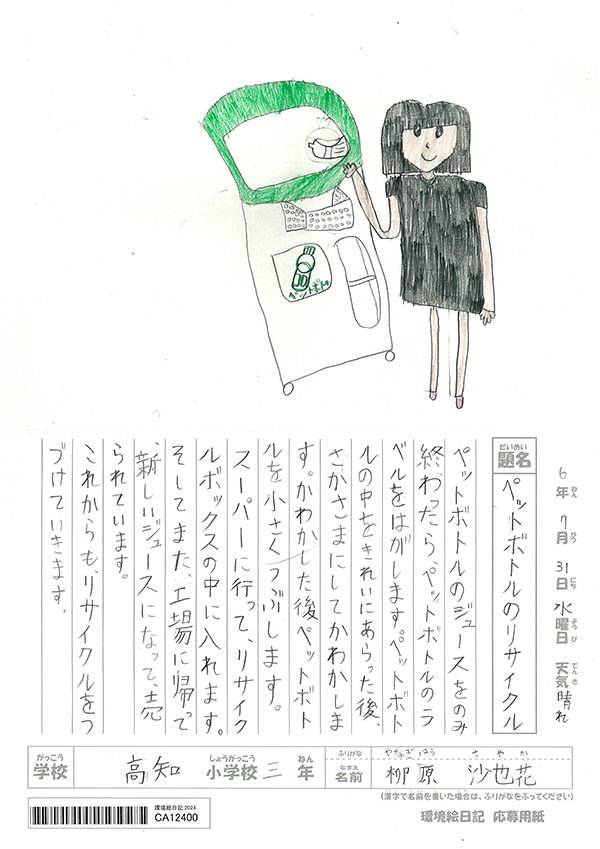 ペットボトル
6年ねん7月がつ31日にち水曜日ようび 天気てんき晴れ
題名だいめい ペットボトルのリサイクル
ペットボトルのジュースをのみ
終わったら、ペットボトルのラ
ベルをはがします。ペットボト
ルの中をきれいにあらった後、
さかさまにしてかわかしま
す。かわかした後ペットボト
ルを小さくつぶします。
スーパーに行って、リサイク
ルボックスの中に入れます。
そしてまた、工場に帰って
新しいジュースになって、売
られています。
これからも、リサイクルをつ
づけていきます。
がっこう しょうがっこう ねん ふりがな やなぎはら さやか
学校 高知 小学校 三年 なまえ 名前 柳原 沙也花
(漢字で名前を書いた場合は、ふりがなをふってください)
環境絵日記 2024
CA12400
環境絵日記 応募用紙